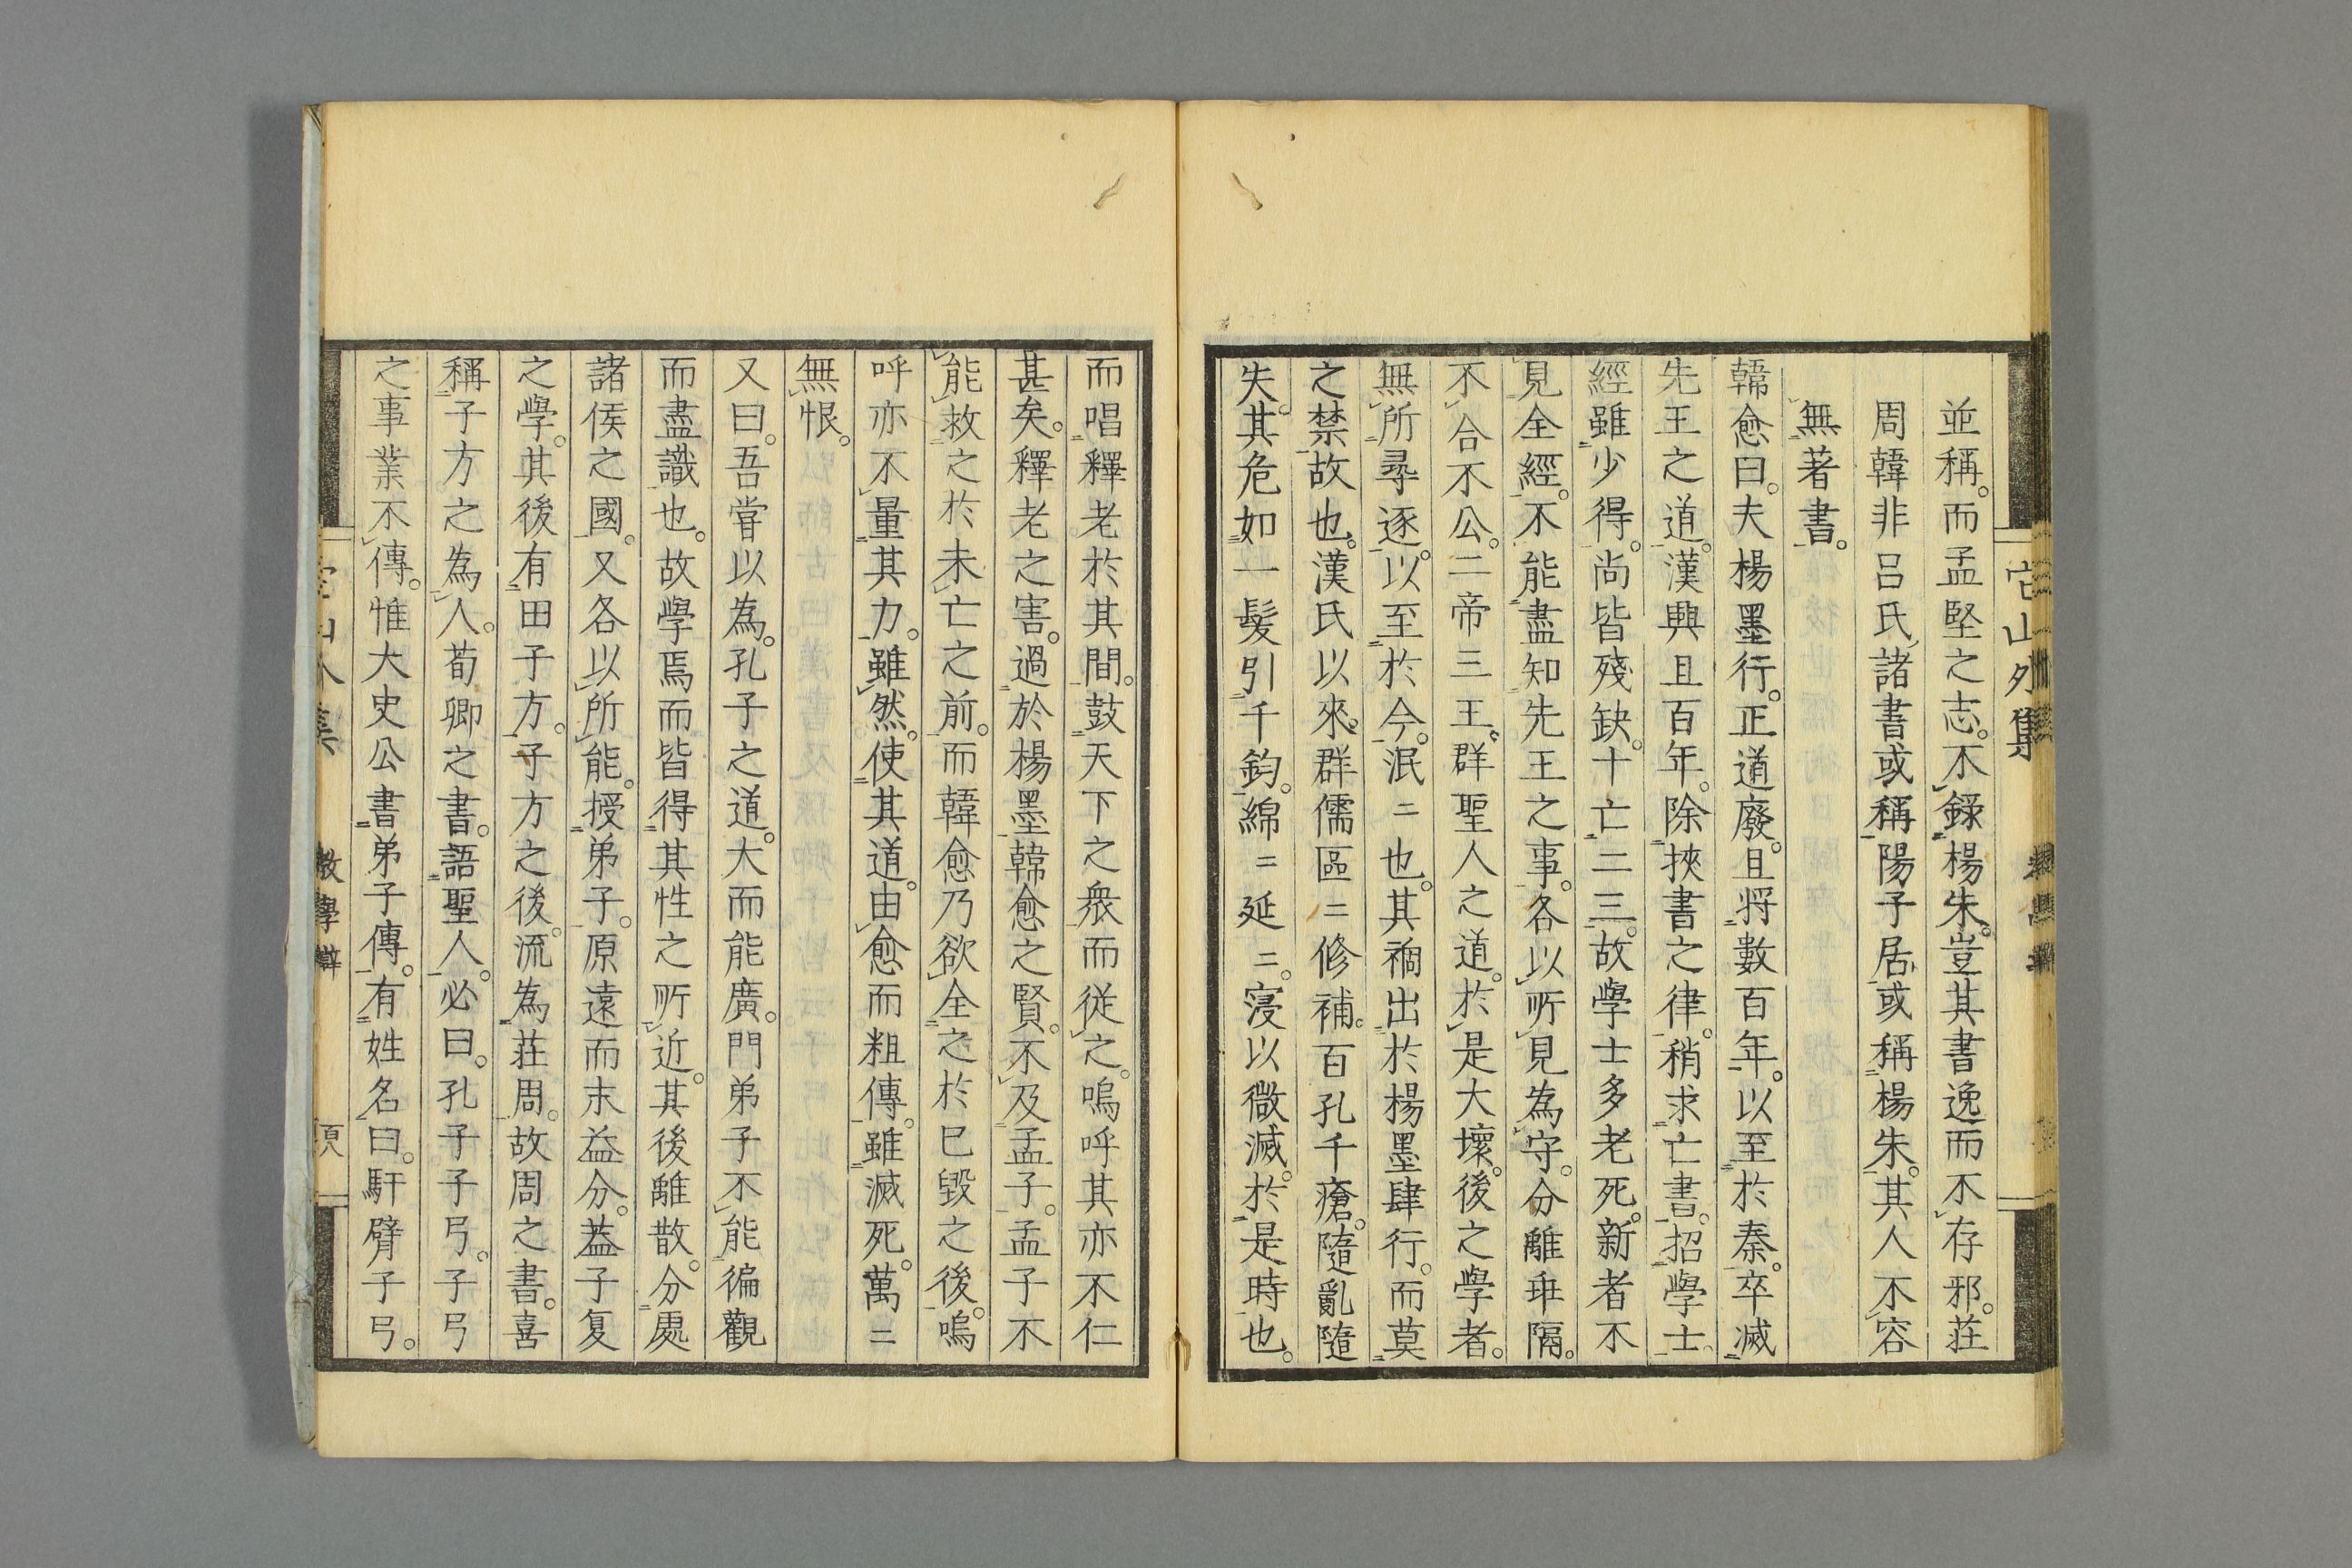 並稱。而孟堅之志。不錄楊朱。豈其書逸而不存邪。莊
周韓非呂氏諸書或稱陽子居或稱楊朱。其人不容
無著書。
韓愈曰。夫楊墨行。正道廢。且將數百年。以至於秦。卒滅
先王之道。漢興且百年。除挾書之律。稍求亡書。招學士。
經雖少得。尚皆殘缺。十亡二三。故學士多老死。新者不
見全經。不能盡知先王之事。各以所見為守。分離乖隔。
不合不公。二帝三王。群聖人之道。於是大壞。後之學者。
無所尋逐。以至於今。泯〻也。其禍出於楊墨肆行。而莫
之禁故也。漢氏以來。群儒區〻修補。百孔千瘡。隨亂隨
失。其危如一髮引千鈞。綿〻延〻。寖以微滅。於是時也。
而唱釋老於其間。鼓天下之衆而從之。嗚呼其亦不仁
甚矣。釋老之害。過於楊墨。韓愈之賢。不及孟子。孟子不
能救之於未亡之前。而韓愈乃欲全之於已毀之後。嗚
呼亦不量其力。雖然。使其道。由愈而粗傳。雖滅死。萬〻
無恨。
又曰。吾嘗以為。孔子之道。大而能廣。門弟子不能徧觀
而盡識也。故學焉而皆得其性之所近。其後離散。分處
諸侯之國。又各以所能。授弟子。原遠而末益分。蓋子夏
之學。其後有田子方。子方之後。流為莊周。故周之書。喜
稱子方之為人。荀卿之書。語聖人。必曰。孔子子弓。子弓
之事業不傳。惟大史公書弟子傳。有姓名曰。馯臂子弓。
它山外集
教學辯